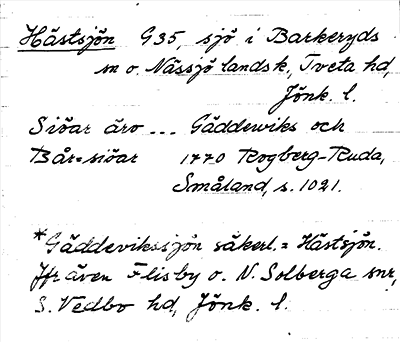 Hästsjön G35, sjö i Barkeryds
sn o. Nässjö landsk., Tveta hd,
Jönk. l.
Siöar äro ... Gäddewiks och
Bår-siöar 1770 Rogberg-Ruda,
Småland, s. 1021.
*Gäddevikssjön säkerl. = Hästsjön.
Jfr även Flisby o. N. Solberga snr,
S. Vedbo hd, Jönk. l.